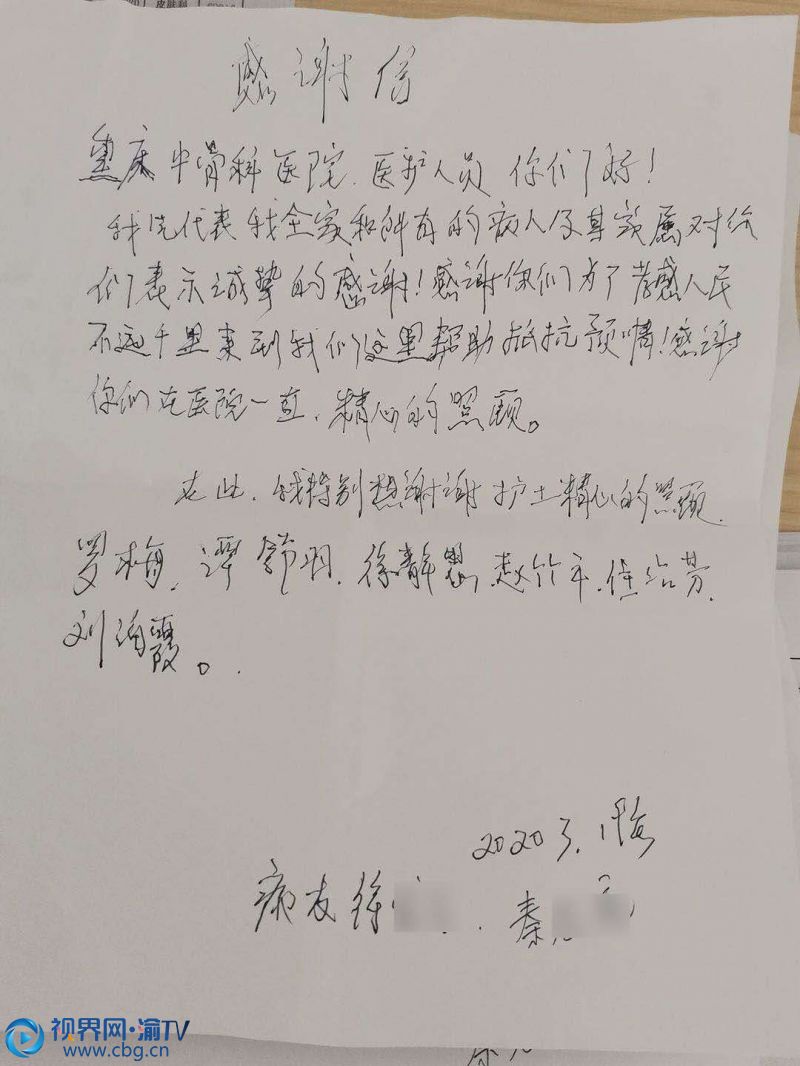 皮肤科
感谢信
重庆牛骨科医院.医护人员 你们好!
我先代表我全家和所有的病人及其家属对你
们表示诚挚的感谢!感谢你们为了孝感人民
不远千里来到我们这里帮助抵抗疫情!感谢
你们在医院一直.精心的照顾。
在此.我特别想谢谢护士精心的照顾.
罗梅.谭 羽.徐静 .赵竹 . 芬.
刘 霞。
2020 3.
病友徐 . 秦
视界网·渝TV
www.cbg.cn